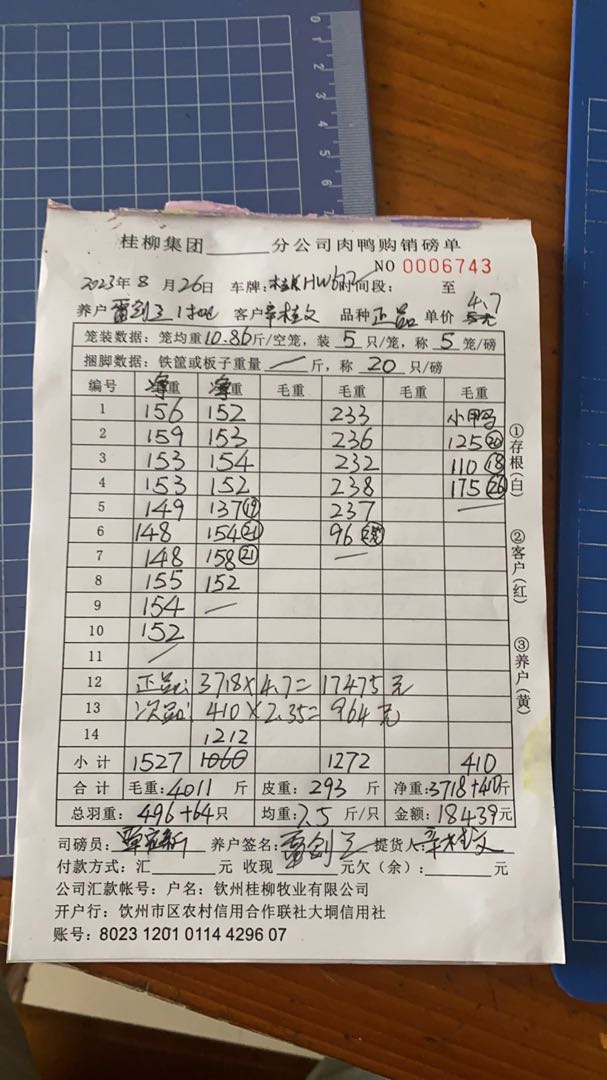 桂柳集团 分公司肉鸭购销磅单
NO 0006743
2023年8月26日 车牌: 桂KHW617 时间段: 至
养户 雷剑 客户 辛桂文 品种 正品 单价 4.7
笼装数据: 笼均重10.86斤/空笼, 装 5 只/笼, 称 5 笼/磅
捆脚数据: 铁筐或板子重量 / 斤, 称 20 只/磅
编号 净重 净重 毛重 毛重 毛重 毛重
1 156 152 233 小鸭
2 159 153 236 125⑳
3 153 154 232 110⑱
4 153 152 238 175㉖
5 149 137⑲ 237 —
6 148 154㉑ 96
7 148 158㉑ —
8 155 152
9 154 —
10 152
11 /
12 正品: 3718×4.7= 17475元
13 次品: 410×2.35= 964元
14 1212
小计 1527 1060 1272 410
合计 毛重: 4011 斤 皮重: 293 斤 净重: 3718+410斤
总羽重: 496+64只 均重: 7.5 斤/只 金额: 18439元
司磅员: 养户签名: 雷剑 提货人: 辛桂文
付款方式: 汇 元 收现 元欠(余): 元
公司汇款帐号: 户名: 钦州桂柳牧业有限公司
开户行: 饮州市区农村信用合作联社大垌信用社
账号: 8023 1201 0114 4296 07
①存根(白)
②客户(红)
③养户(黄)